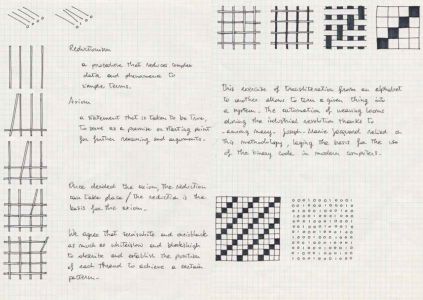 Reductionism
a procedure that reduces complex
data and phenomena to
simpler terms.
Axiom
a statement that is taken to be true,
to serve as a premise or starting point
for further reasoning and arguments.
Once decided the axiom, the reduction
can take place / the reduction is the
basis for the axiom.
We agree that
as much as
to describe and establish the position
of each thread to achieve a certain
pattern.
This exercise of transliteration from an alphabet
to another allows to turn a given thing into
a system. The automation of weaving looms
during the industrial revolution thanks to
- among many - Joseph-Marie Jacquard relied on
this methodology, laying the basis for the use
of the binary code in modern computers.